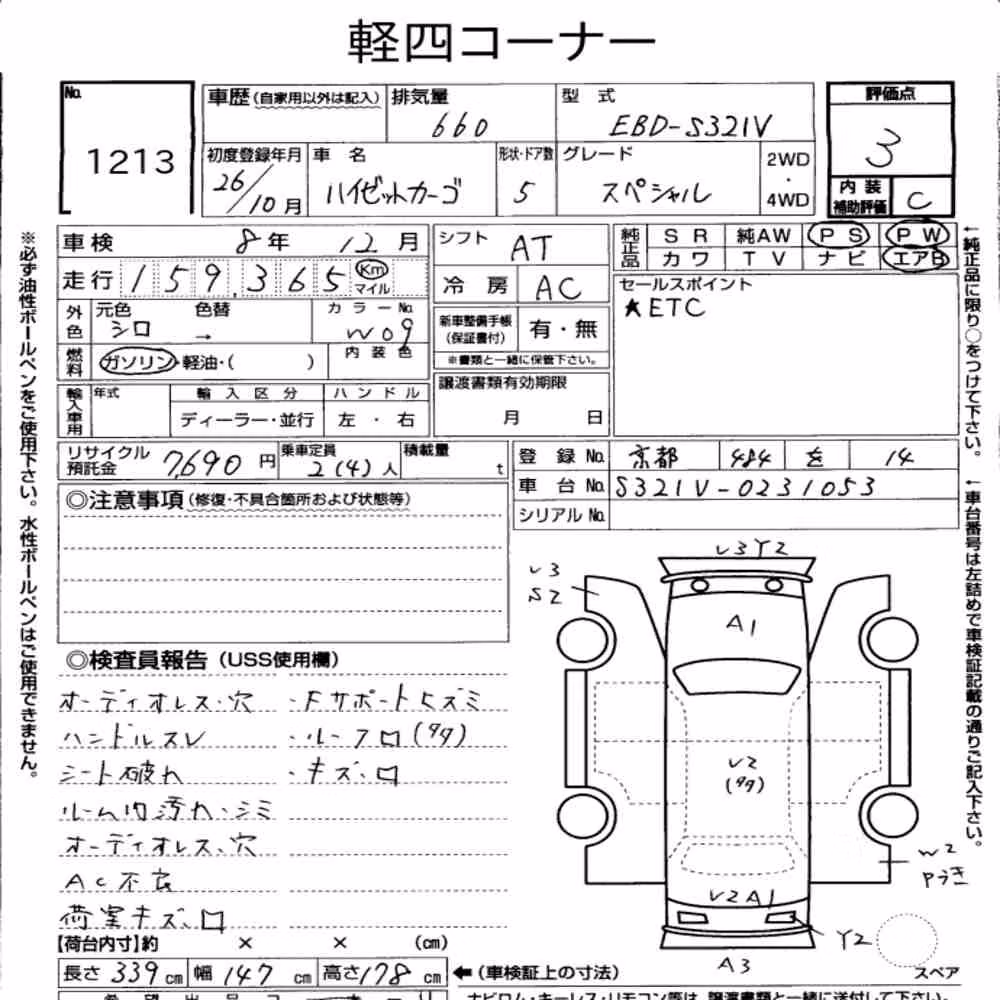 軽四コーナー
No. 1213
車歴(自家用以外は記入) 排気量 660 型式 EBD-S321V
評価点 3
初度登録年月 26/10月 車名 ハイゼットカーゴ 形状・ドア数 5 グレード スペシャル 2WD・4WD
内装補助評価 C
車検 8年 12月 シフト AT
純正品 SR 純AW PS PW
カワ TV ナビ エアB
走行 159,365 Km マイル 冷房 AC
セールスポイント
★ETC
外色 元色 シロ 色替 → カラーNo. W09
新車整備手帳(保証書付) 有・無
※書類と一緒に保管下さい。
燃料 ガソリン・軽油・( ) 内装色
譲渡書類有効期限
月 日
輸入車用 年式 輸入区分 ハンドル
ディーラー・並行 左・右
リサイクル預託金 7,690円 乗車定員 2(4)人 積載量 t
登録No. 京都 484 を 14
車台No. S321V-0231053
シリアルNo.
◎注意事項(修復・不具合箇所および状態等)
◎検査員報告(USS使用欄)
オーディオレス・穴 ・Fサポートヒズミ
ハンドルスレ ・ルーフ凹(タタ)
シート破れ ・キズ、凹
ルーム内汚れ・シミ
オーディオレス、穴
AC不良
荷室キズ、凹
【荷台内寸】約 × × (cm)
長さ 339cm 幅 147cm 高さ178cm ←(車検証上の寸法)
U3Y2
U3
S2
A1
U2
(タタ)
W2
Pうき
V2A1
Y2
A3
スペア
※必ず油性ボールペンをご使用下さい。水性ボールペンはご使用できません。
←純正品に限り○をつけて下さい。
←車台番号は左詰めで車検証記載の通りご記入下さい。